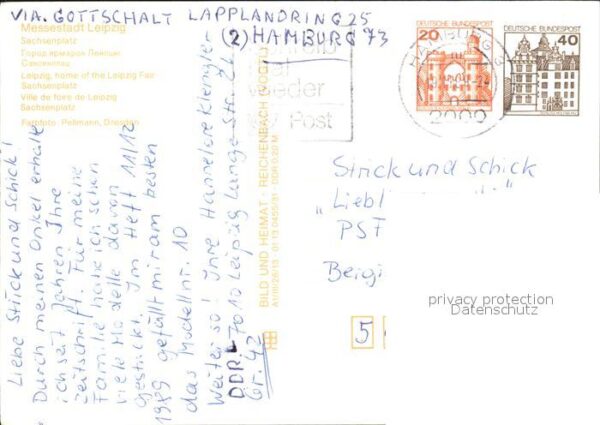 VIA. GOTTSCHALT LAPPLANDRING 25
(2) HAMBURG 73
Messestadt Leipzig
Sachsenplatz
Город ярмарок Лейпциг
Саксенплац
Leipzig, home of the Leipzig Fair
Sachsenplatz
Ville de foire de Leipzig
Sachsenplatz
Farbfoto: Pellmann, Dresden
Liebe Strick und Schick!
Durch meinen Onkel erhalte
ich seit Jahren Ihre
Zeitschrift. Für meine
Familie habe ich schon
viele Modelle davon
gestrickt. Im Heft 11/12
1989 gefällt mir am besten
das Modell nr. 10
Weiter so! Ihre Hannelore
DDR 7010 Leipzig Lange Str.
Gr. 42
BILD UND HEIMAT REICHENBACH (VOGTL)
DDR 0,20 M
mal
wieder
Post
HAMBURG
2000
20
DEUTSCHE BUNDESPOST
DEUTSCHE BUNDESPOST
40
Strick und Schick
"Liebl
PSF
Bergi
5
privacy protection
Datenschutz